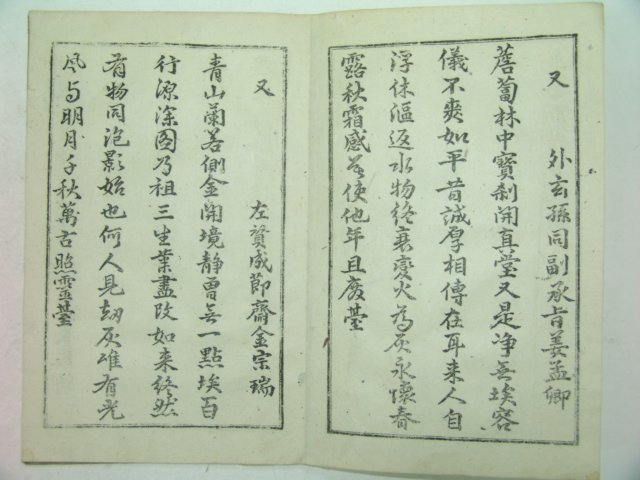 又
外玄孫同副承旨姜孟卿
薝蔔林中寶刹開真堂又是净無埃容
儀不爽如平昔誠厚相傳在耳来人自
浮休漚返水物終衰變火為灰永懷春
露秋霜感莫使他年且廢臺
又
左賛成節齋金宗瑞
青山蘭若側金開境静曽無一點埃百
行源深图乃祖三生業盡改如来終然
有物同泡影始也何人見刼灰雄有光
風与明月千秋萬古照霊臺